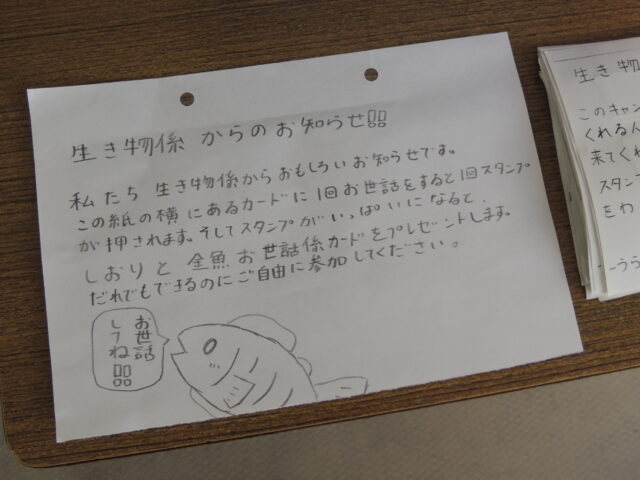 生き物係からのお知らせ!!
私たち生き物係からおもしろいお知らせです。
この紙の横にあるカードに1回お世話をすると1回スタンプ
が押されます。そしてスタンプがいっぱいになると、
しおりと金魚お世話係カードをプレゼントします。
だれでもできるのにご自由に参加してください。
お世話
してね!!
生き物
このキャン
くれる人
来てくれ
スタン
をわ
うら